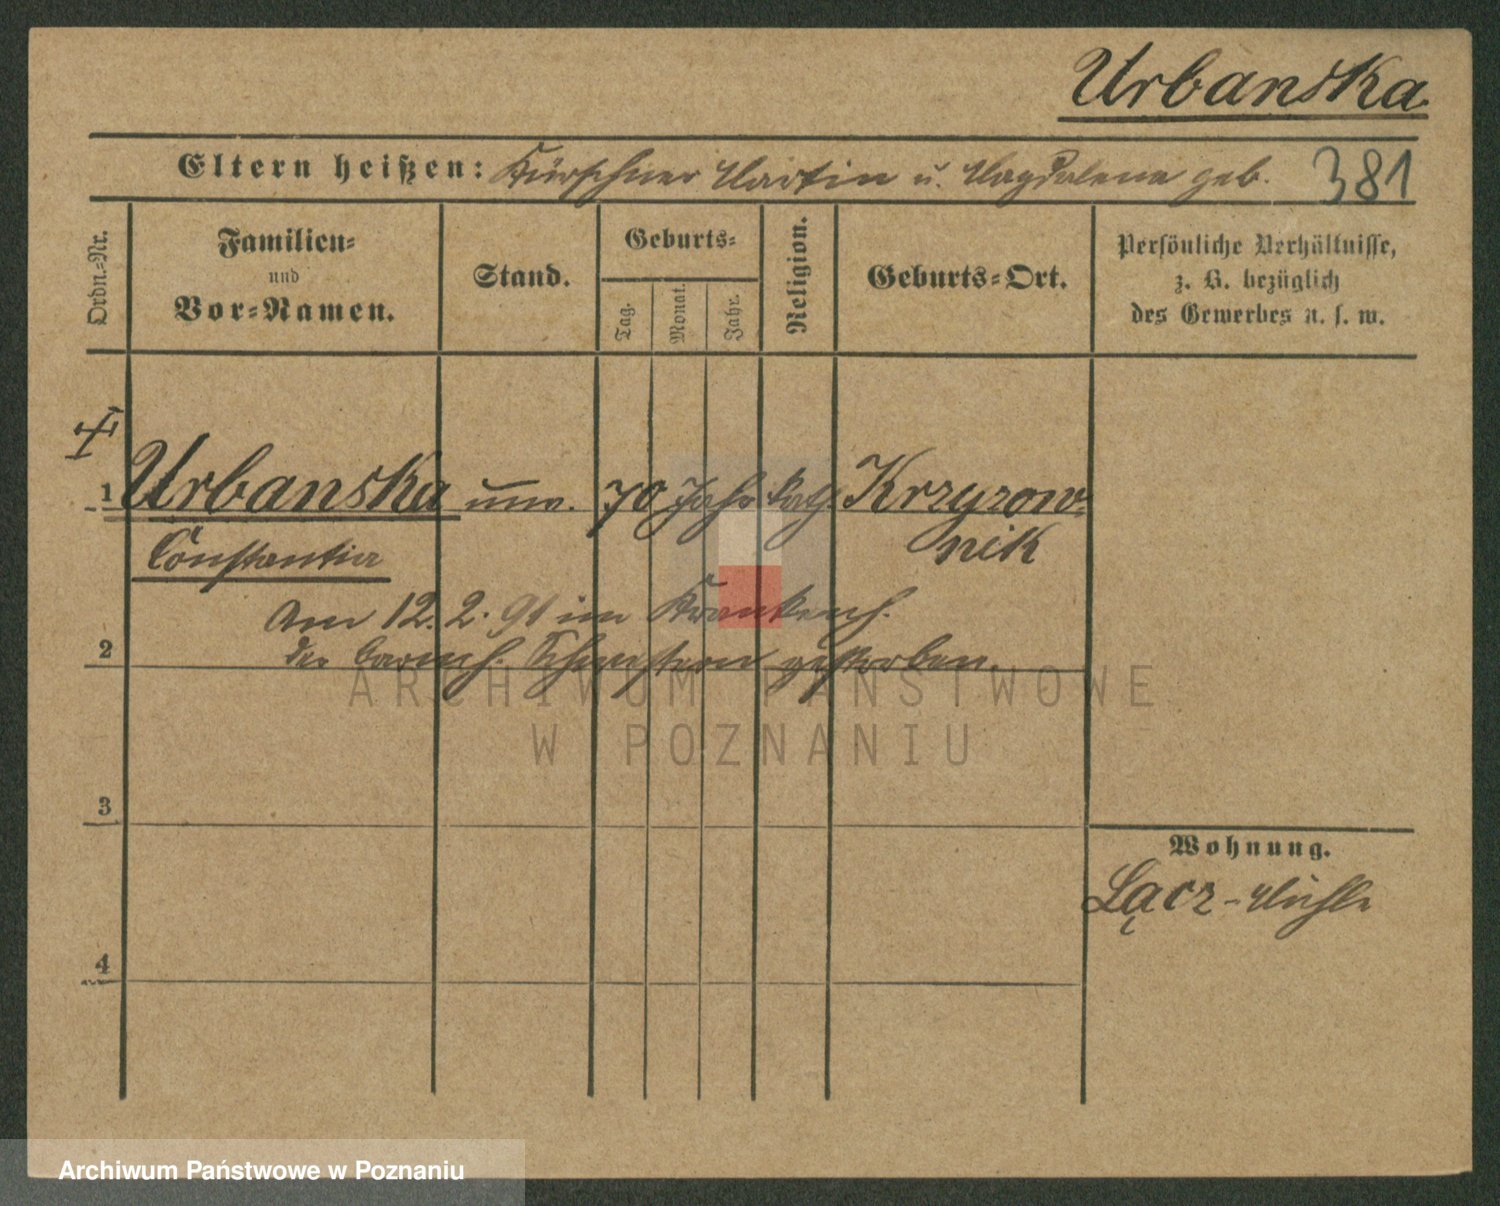 Urbanska
Eltern heißen: Kürschner Martin u. Magdalena geb. 381
Ordn.-Nr.
Familien-
und
Vor-Namen.
Stand.
Geburts-
Tag.
Monat.
Jahr.
Religion.
Geburts-Ort.
Persönliche Verhältnisse,
z. B. bezüglich
des Gewerbes u. s. w.
1 Urbanska unv. 70 Jahr kath. Krzyzow-
nik
Constantia
Am 12. 2. 91 im Krankenh.
2
der barmh. Schwestern gestorben.
ARCHIWUM PAŃSTWOWE
W POZNANIU
3
Wohnung.
Łącz-Mühle
4
Archiwum Państwowe w Poznaniu